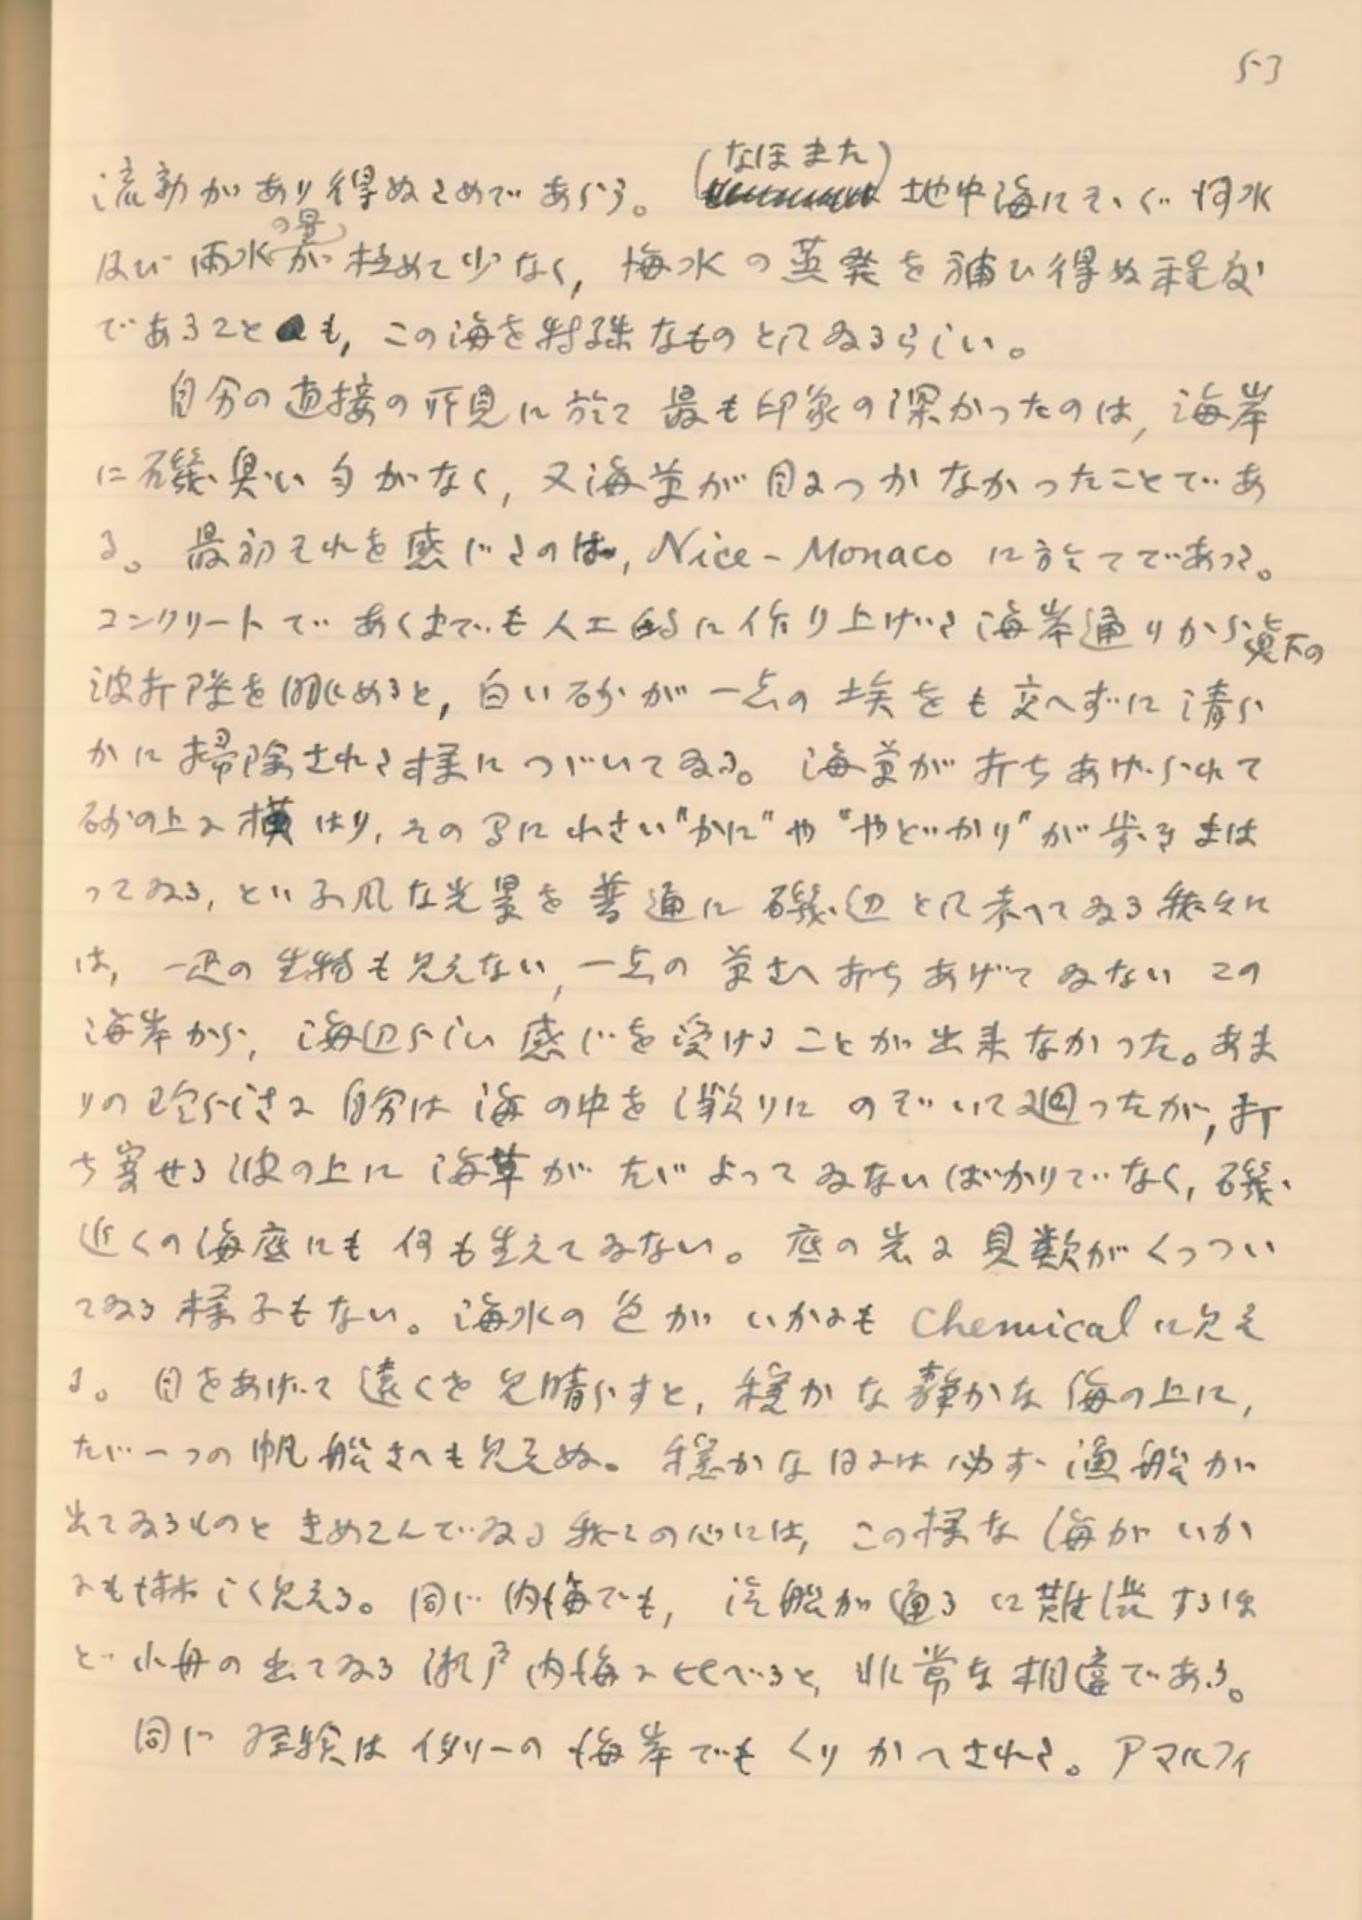 53
流動があり得ぬためであらう。(なほまた) 地中海にそゝぐ河水
及び雨水の量が極めて少なく, 海水の蒸発を補ひ得ぬ程度
であることも, この海を特殊なものとしてゐるらしい。
自分の直接の所見に於て最も印象の深かったのは, 海岸
に磯臭い匂がなく, 又海草が目につかなかったことであ
る。 最初それを感じたのは, Nice-Monaco に於てであった。
コンクリートで あくまでも人工的に作り上げた海岸通りから真下の
波打際を眺めると, 白い砂が一点の埃をも交へずに清ら
かに掃除された様につゞいてゐる。 海草が打ちあげられて
砂の上に横はり, その間に小さい"かに"や"やどかり"が歩きまは
ってゐる, といふ風な光景を普通に磯辺として考へてゐる我々に
は, 一疋の生物も見えない, 一点の草さへ打ちあげてゐない この
海岸から, 海辺らしい感じを受けることが出来なかった。あま
りの珍らしさに 自分は海の中を頻りにのぞいて廻ったが, 打
ち寄せる波の上に海草がたゞよってゐないばかりでなく, 磯
近くの海底にも何も生えてゐない。 底の岩に貝類がくっつい
てゐる様子もない。海水の色がいかにも Chemical に見え
る。 目をあげて遠くを見晴らすと, 穏かな静かな海の上に,
たゞ一つの帆船さへも見えぬ。 穏かな日には必ず漁船が
出てゐるものときめこんでゐる我々の心には, この様な海がいか
にも淋しく見える。同じ内海でも, 汽船が通るに難渋するほ
ど小舟の出てゐる瀬戸内海に比べると, 非常な相違である。
同じ経験はイタリーの海岸でもくりかへされた。アマルフィ